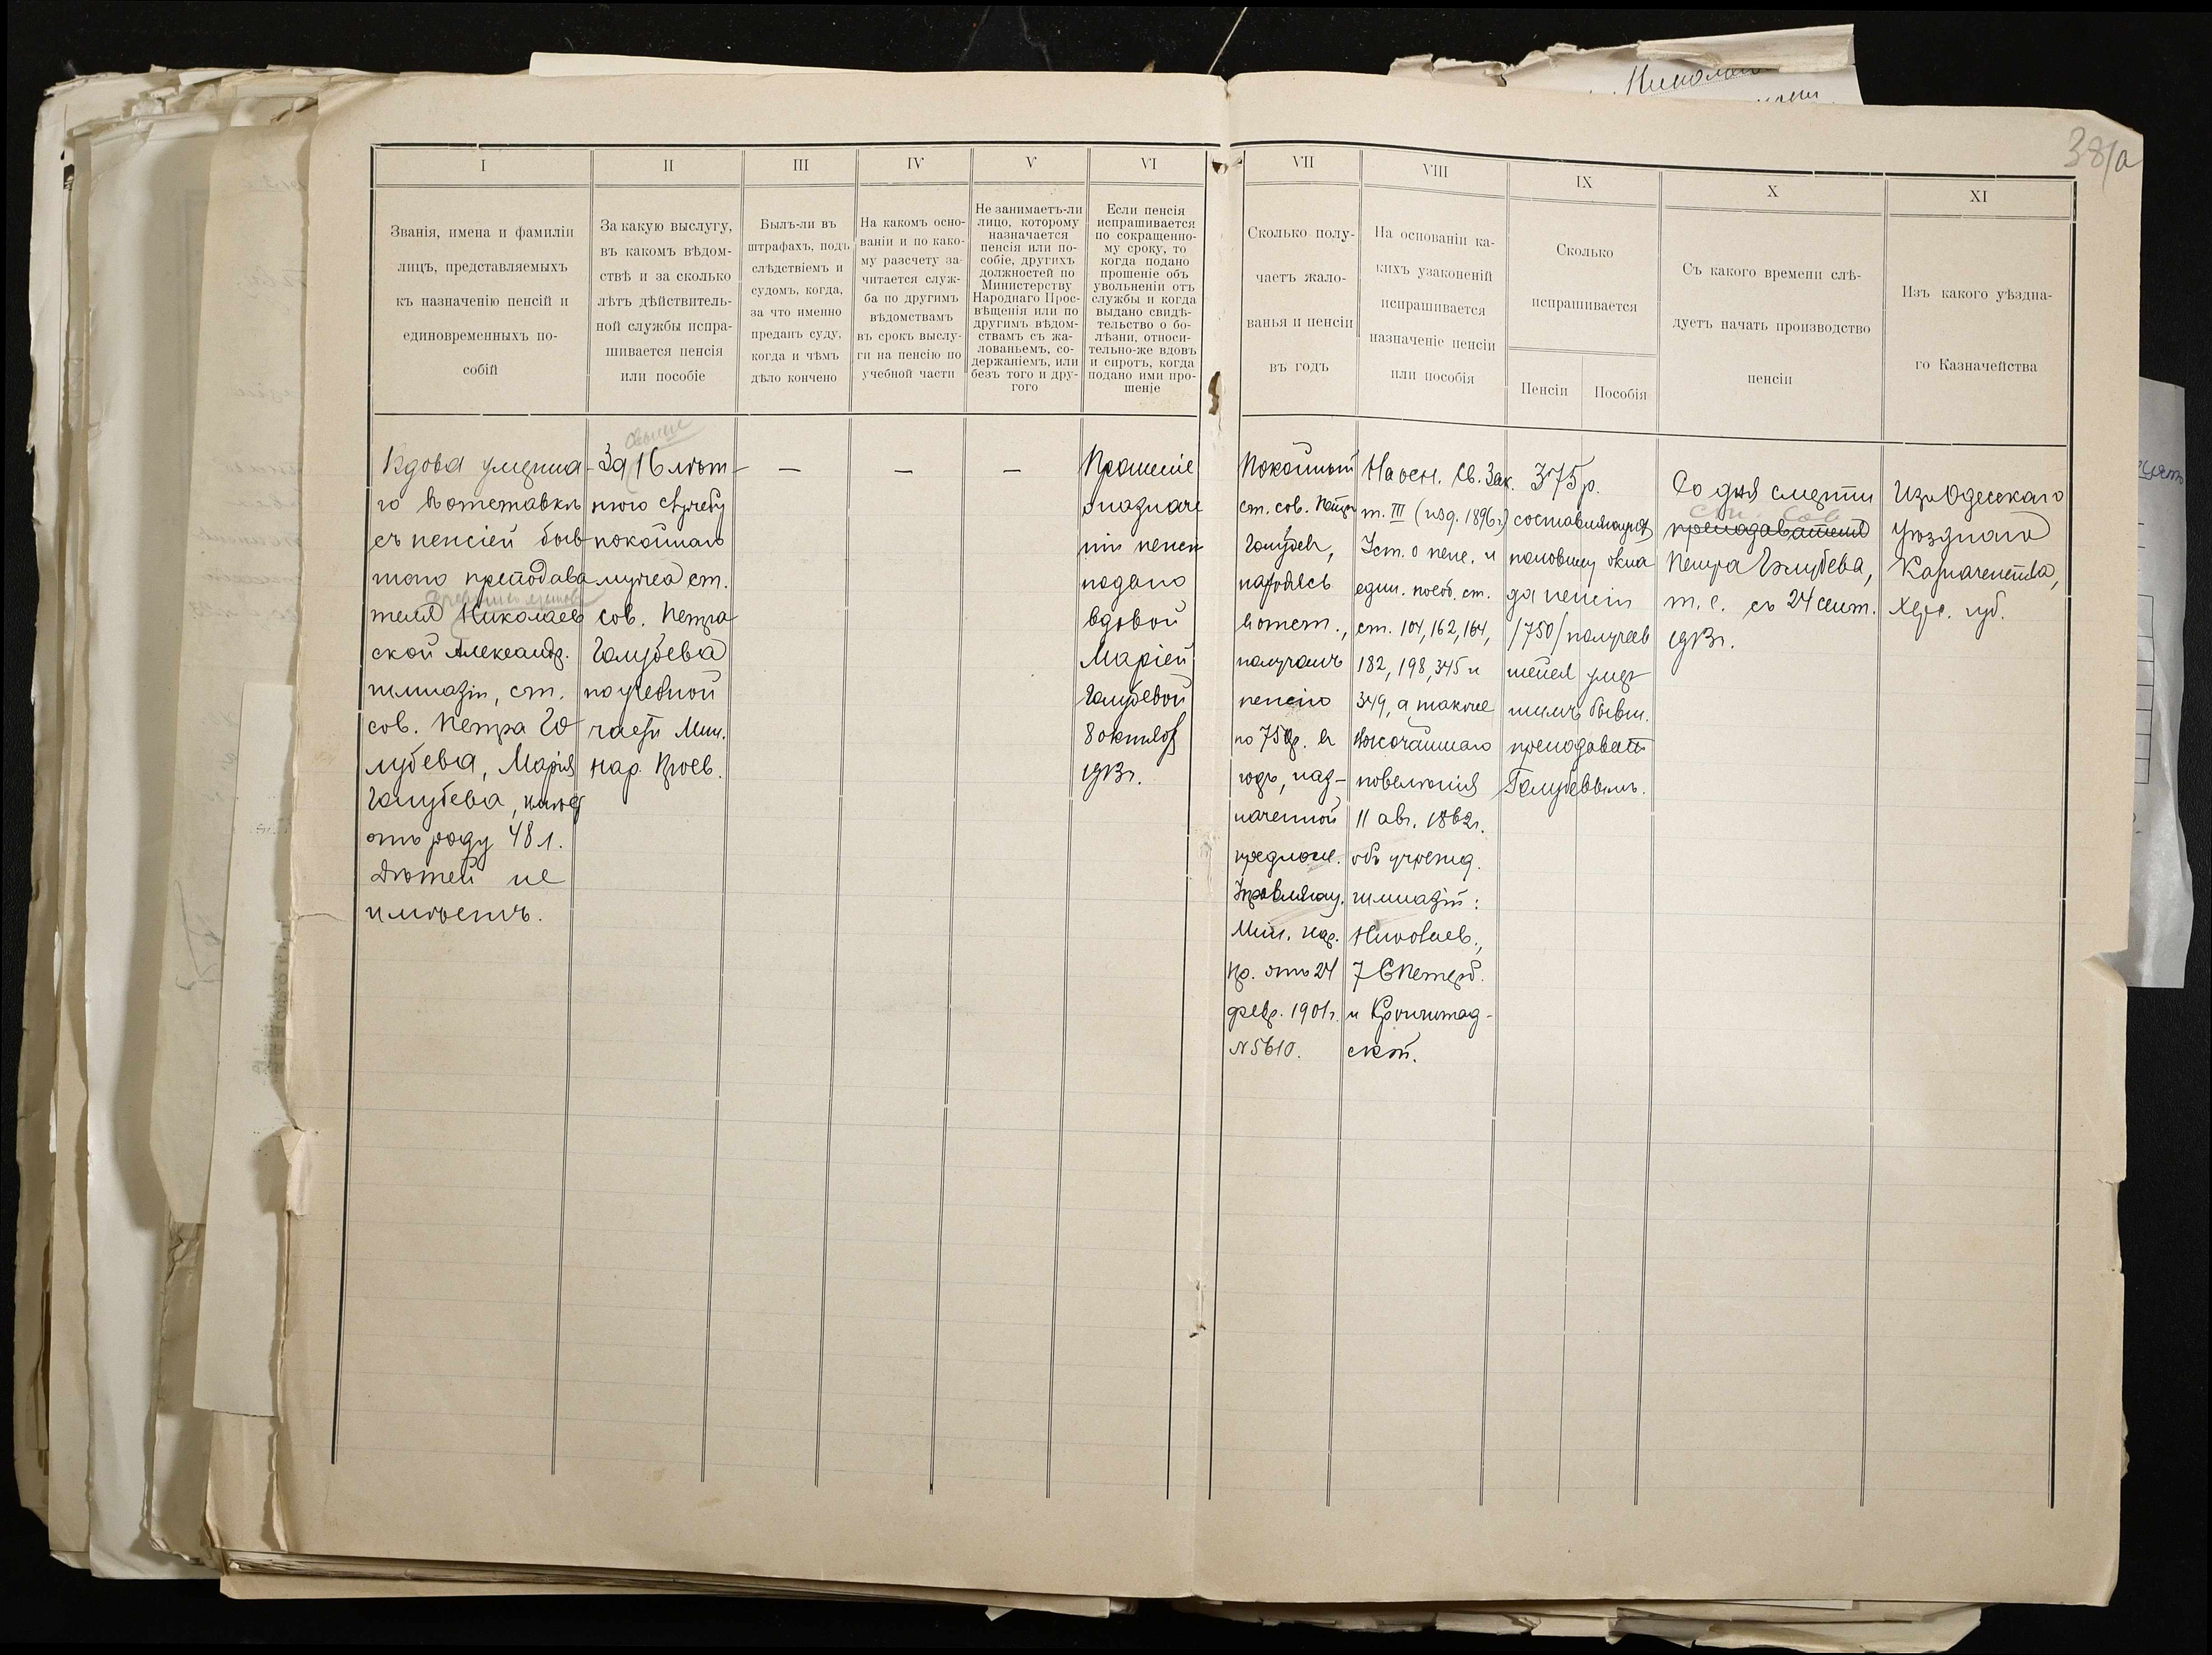 381а
I
Званія, имена и фамиліи
лицъ, представляемыхъ
къ назначенію пенсій и
единовременныхъ по-
собій
II
За какую выслугу,
въ какомъ вѣдом-
ствѣ и за сколько
лѣтъ дѣйствитель-
ной службы испра-
шивается пенсія
или пособіе
III
Былъ-ли въ
штрафахъ, подъ
слѣдствіемъ и
судомъ, когда,
за что именно
преданъ суду,
когда и чѣмъ
дѣло кончено
IV
На какомъ осно-
ваніи и по како-
му разсчету за-
читается служ-
ба по другимъ
вѣдомствамъ
въ срокъ выслу-
ги на пенсію по
учебной части
V
Не занимаетъ-ли
лицо, которому
назначается
пенсія или по-
собіе, другихъ
должностей по
Министерству
Народнаго Прос-
вѣщенія или по
другимъ вѣдом-
ствамъ съ жа-
лованьемъ, со-
держаніемъ, или
безъ того и дру-
гого
VI
Если пенсія
испрашивается
по сокращенно-
му сроку, то
когда подано
прошеніе объ
увольненіи отъ
службы и когда
выдано свидѣ-
тельство о бо-
лѣзни, относи-
тельно-же вдовъ
и сиротъ, когда
подано ими про-
шеніе
VII
Сколько полу-
чаетъ жало-
ванья и пенсіи
въ годъ
VIII
На основаніи ка-
кихъ узаконеній
испрашивается
назначеніе пенсіи
или пособія
IX
Сколько
испрашивается
Пенсіи
Пособія
X
Съ какого времени слѣ-
дуетъ начать производство
пенсіи
XI
Изъ какого уѣздна-
го Казначейства
Вдова умерша-
го въ отставкѣ
съ пенсіей быв-
шаго преподава
древнихъ языковъ
теля Николаев
ской Александр.
гимназіи, ст.
сов. Петра Го
лубева, Марія
Голубева,
отъ роду 48 л.
Дѣтей не
имѣетъ.
свыше
За 16 лѣт-
нюю службу
покойнаго
мужа ст.
сов. Петра
Голубева
по учебной
части Мин.
Нар. Просв.
—
—
—
Прошеніе
о назначе
ніи пенсіи
подано
вдовой
Маріей
Голубевой
8 октября
1913 г.
Покойный
ст. сов. Петръ
Голубевъ,
находясь
въ отст.,
получалъ
пенсію
по 750 р. въ
годъ, наз-
наченной
предлож.
Управляющ.
Мин. Нар.
Пр. отъ 24
февр. 1901 г.
№ 5610.
На осн. Св. Зак.
т. III (изд. 1896 г.)
Уст. о пенс. и
един. пособ. ст.
ст. 104, 162, 164,
182, 198, 345 и
349, а также
Высочайшаго
повелѣнія
11 авг. 1862 г.
объ учрежд.
гимназій:
Николаев.,
7 СПетерб.
и Кронштад-
ской.
375 р.
составляющихъ
половину окла
да пенсіи
/750/ получав
шейся умер
шимъ бывш.
преподават.
Голубевымъ.
Со дня смерти
ст. сов.
преподавателя
Петра Голубева,
т. е. съ 24 сент.
1913 г.
Изъ Одесскаго
Уѣзднаго
Казначейства,
Херс. губ.